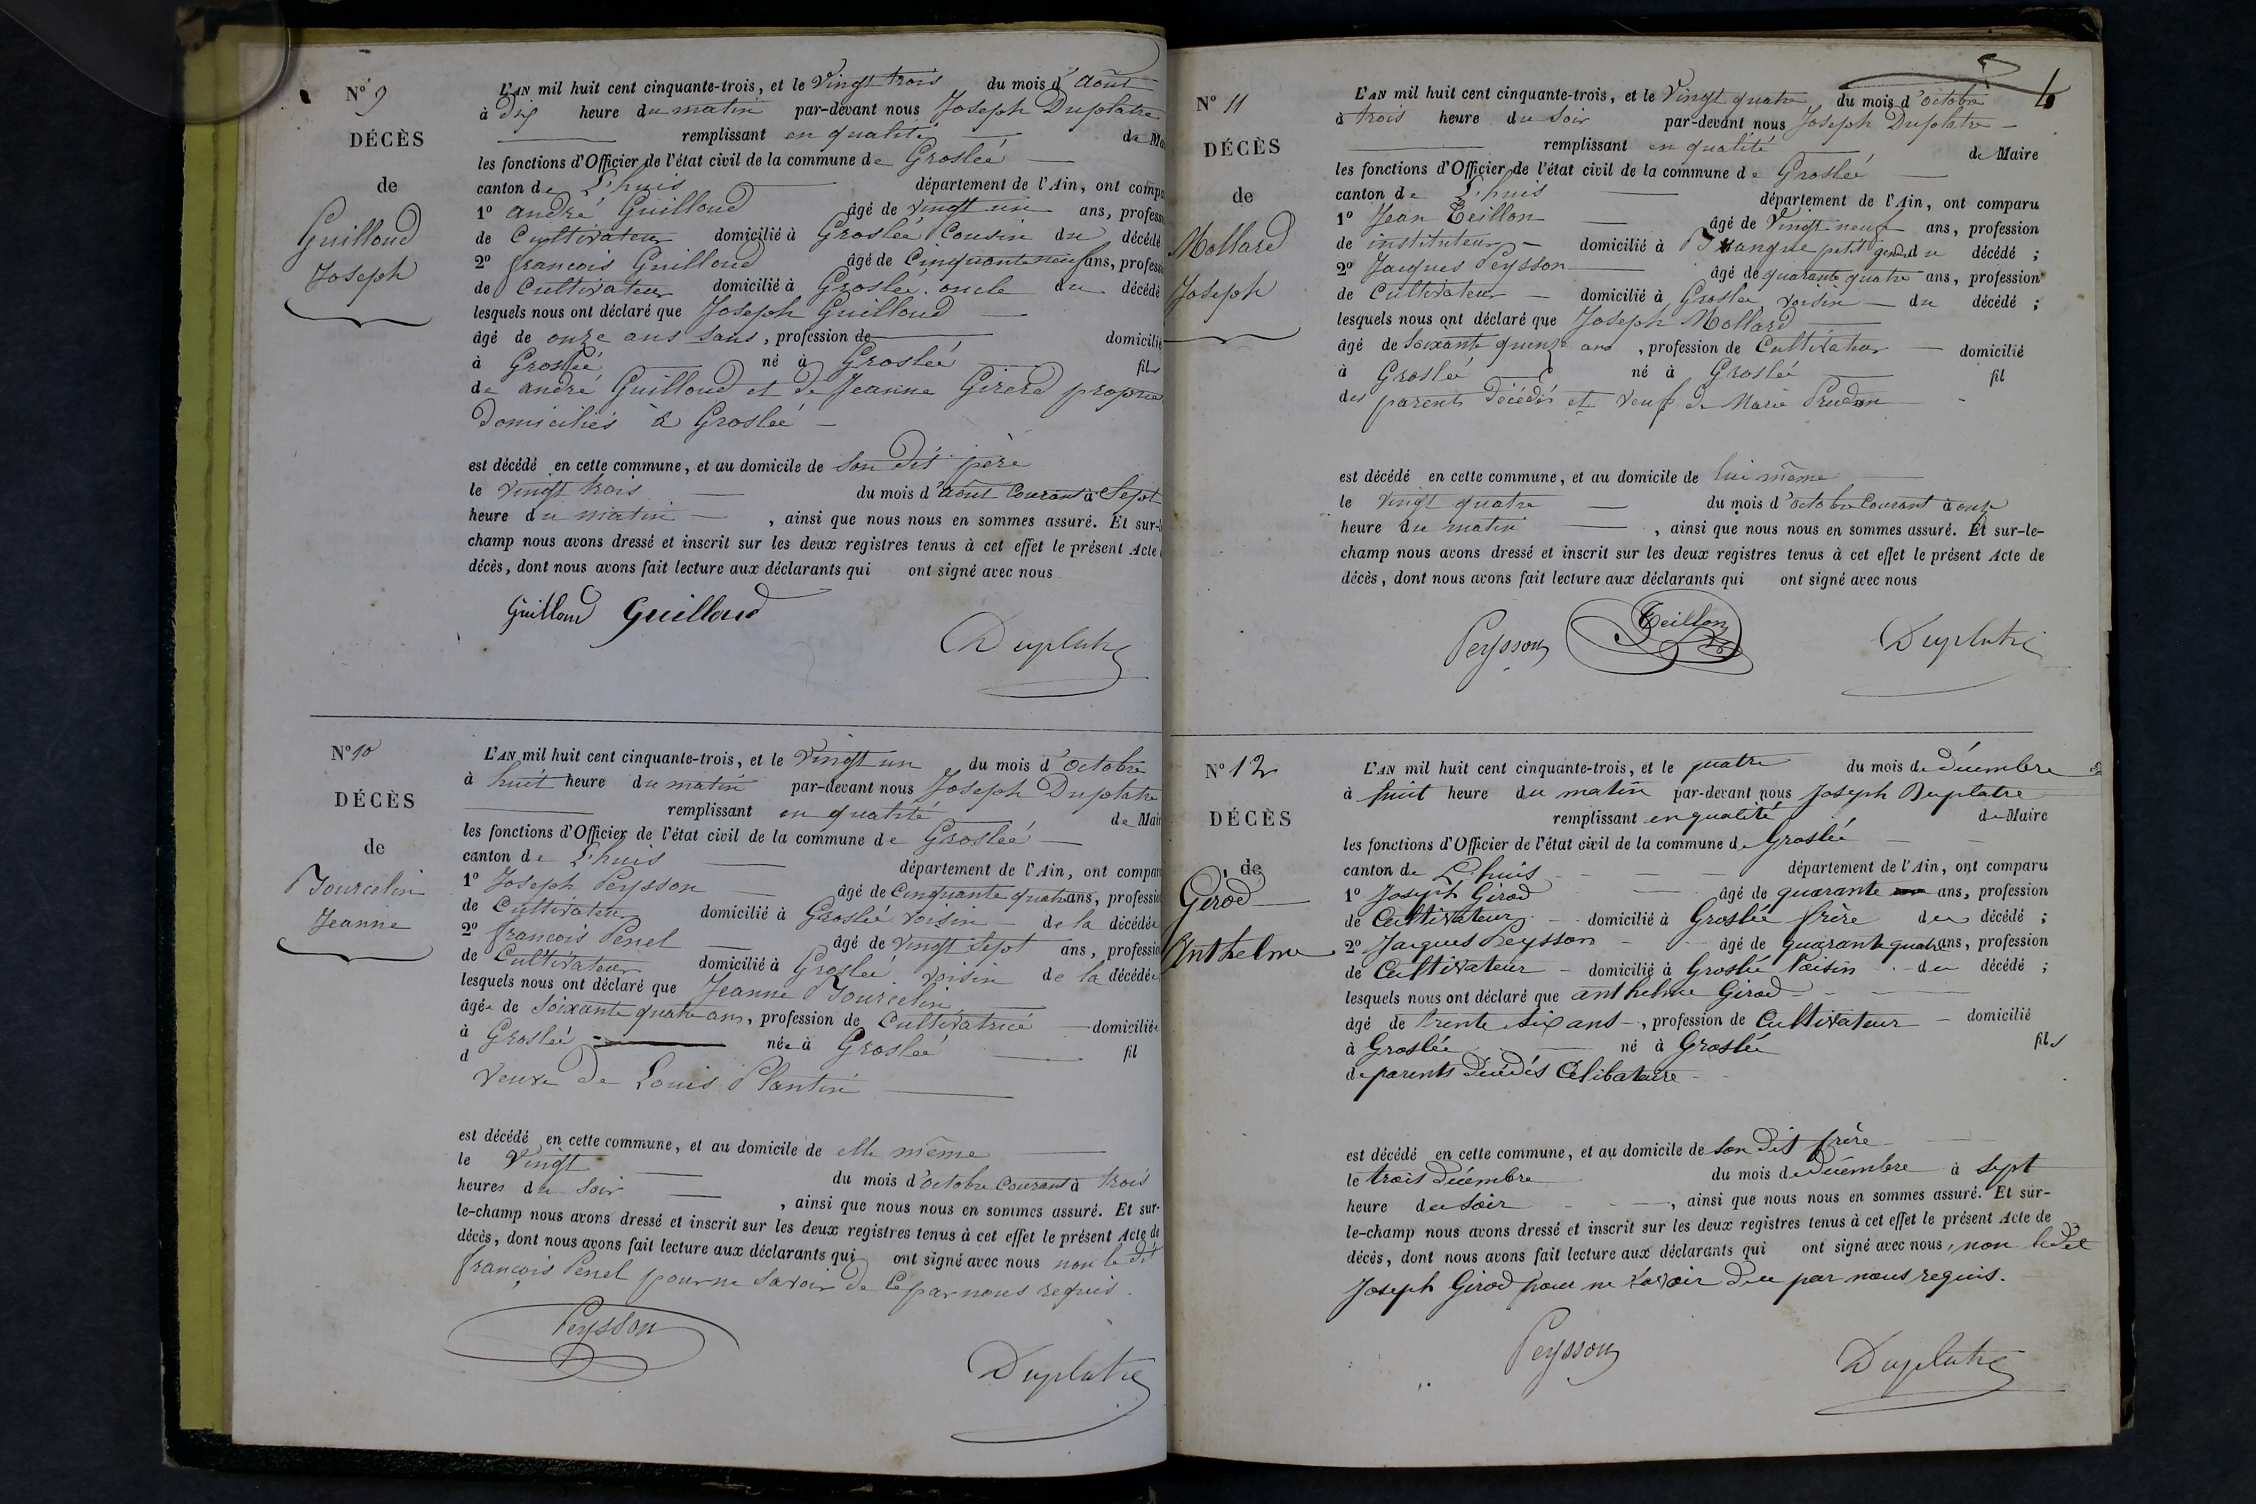 N° 9
DÉCÈS
de
Guilloud
Joseph
L'AN mil huit cent cinquante-trois, et le Vingt trois du mois d'août
à Dix heure du matin par-devant nous Joseph Duplatre
remplissant en qualité de Ma
les fonctions d'Officier de l'état civil de la commune de Groslée
canton de L'huis département de l'Ain, ont compa
1° andré Guilloud âgé de vingt un ans, profess
de Cultivateur domicilié à Groslée Cousin du décédé
2° francois Guilloud âgé de Cinquante neuf ans, profess
de Cultivateur domicilié à Groslée oncle du décédé
lesquels nous ont déclaré que Joseph Guilloud
âgé de onze ans sans, profession de domicilié
à Groslée né à Groslée fils
de andré Guilloud et de Jeanne Girerd proprié
Domiciliés à Groslée
est décédé en cette commune, et au domicile de Son dit père
le vingt trois du mois d'août Courant à Sept
heure du matin, ainsi que nous nous en sommes assuré. Et sur-l
champ nous avons dressé et inscrit sur les deux registres tenus à cet effet le présent Acte
décès, dont nous avons fait lecture aux déclarants qui ont signé avec nous
Guilloud Guilloud
Duplatre
N° 10
DÉCÈS
de
Tourcelin
Jeanne
L'AN mil huit cent cinquante-trois, et le Vingt un du mois d'octobre
à huit heure du matin par-devant nous Joseph Duplatre
remplissant en qualité de Mair
les fonctions d'Officier de l'état civil de la commune de Groslée
canton de L'huis département de l'Ain, ont compar
1° Joseph Peysson âgé de Cinquante quatre ans, professio
de Cultivateur domicilié à Groslée voisin de la décédée
2° francois Penel âgé de vingt Sept ans, professio
de Cultivateur domicilié à Groslée voisin de la décédée
lesquels nous ont déclaré que Jeanne Tourcelin
âgée de Soixante quatre ans, profession de Cultivatrice domiciliée
à Groslée née à Groslée fil
d
Veuve de Louis Plantin
est décédé en cette commune, et au domicile de elle même
le Vingt du mois d'octobre Courant à trois
heures du Soir, ainsi que nous nous en sommes assuré. Et sur-
le-champ nous avons dressé et inscrit sur les deux registres tenus à cet effet le présent Acte de
décès, dont nous avons fait lecture aux déclarants qui ont signé avec nous non le dit
françois Penel pour ne Savoir de Ce par nous requis.
Peysson
Duplatre
N° 11
DÉCÈS
de
Mollard
Joseph
L'AN mil huit cent cinquante-trois, et le Vingt quatre du mois d'octobre
à trois heure du Soir par-devant nous Joseph Duplatre
remplissant en qualité de Maire
les fonctions d'Officier de l'état civil de la commune de Groslée
canton de L'huis département de l'Ain, ont comparu
1° Jean Teillon âgé de Vingt neuf ans, profession
de instituteur domicilié à petit gendre du décédé ;
2° Jacques Peysson âgé de quarante quatre ans, profession
de Cultivateur domicilié à Groslée voisin du décédé ;
lesquels nous ont déclaré que Joseph Mollard
âgé de Soixante quinze ans, profession de Cultivateur domicilié
à Groslée né à Groslée fil
des parents Décédés et veuf de Marie Prudon
est décédé en cette commune, et au domicile de lui même
le Vingt quatre du mois d'octobre Courant à onze
heure du matin, ainsi que nous nous en sommes assuré. Et sur-le-
champ nous avons dressé et inscrit sur les deux registres tenus à cet effet le présent Acte de
décès, dont nous avons fait lecture aux déclarants qui ont signé avec nous
Peysson Teillon Duplatre
N° 12
DÉCÈS
de
Girod
Anthelme
L'AN mil huit cent cinquante-trois, et le quatre du mois de décembre
à huit heure du matin par-devant nous Joseph Duplatre
remplissant en qualité de Maire
les fonctions d'Officier de l'état civil de la commune de Groslée
canton de L'huis département de l'Ain, ont comparu
1° Joseph Girod âgé de quarante ans, profession
de Cultivateur domicilié à Groslée frère du décédé ;
2° Jacques Peysson âgé de quarante quatre ans, profession
de Cultivateur domicilié à Groslée voisin du décédé ;
lesquels nous ont déclaré que anthelme Girod
âgé de trente six ans, profession de Cultivateur domicilié
à Groslée né à Groslée fils
de parents décédés Célibataire
est décédé en cette commune, et au domicile de son dit frère
le trois décembre du mois de décembre à sept
heure du soir, ainsi que nous nous en sommes assuré. Et sur-
le-champ nous avons dressé et inscrit sur les deux registres tenus à cet effet le présent Acte de
décès, dont nous avons fait lecture aux déclarants qui ont signé avec nous, non ledit
Joseph Girod pour ne savoir de ce par nous requis.
Peysson
Duplatre